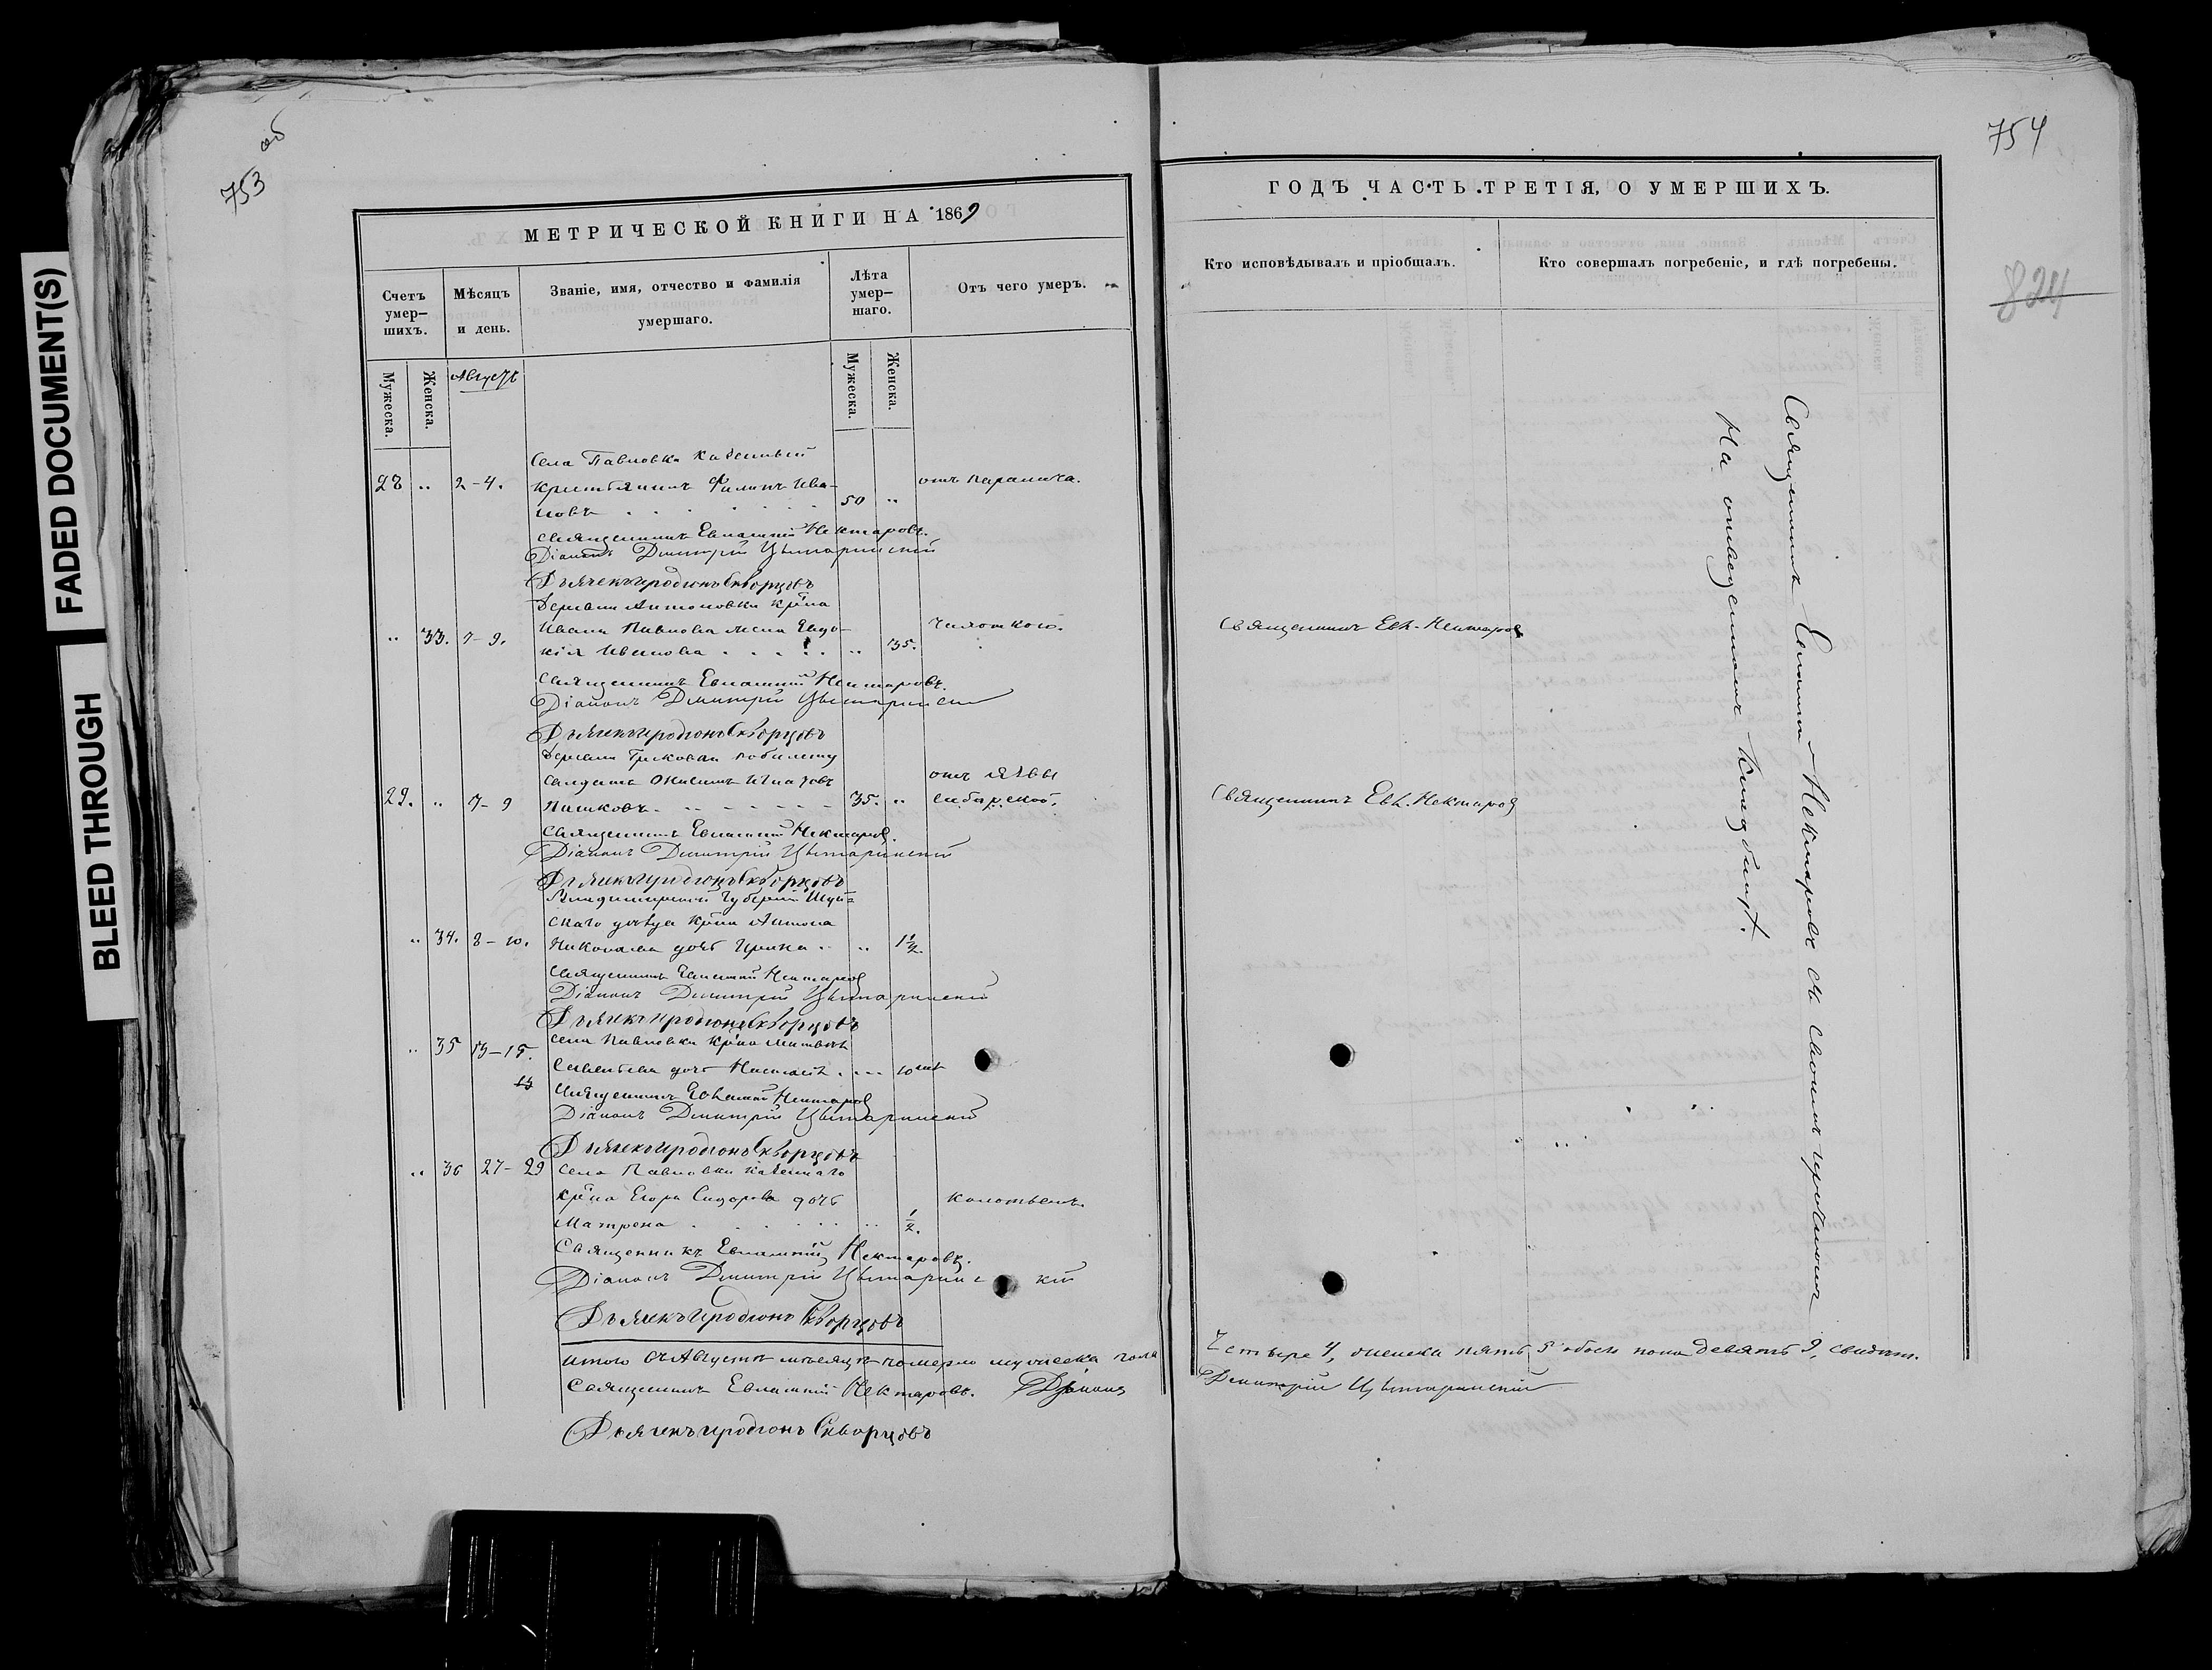 753 об
FADED DOCUMENT(S)
BLEED THROUGH
МЕТРИЧЕСКОЙ КНИГИ НА 1869
Счетъ умер-шихъ.
Мѣсяцъ и день.
Званіе, имя, отчество и фамилія умершаго.
Лѣта умер-шаго.
Отъ чего умеръ.
Мужеска.
Женска.
Августъ
Мужеска.
Женска.
Села Павловки казенный
28 " 2-4. крестьянинъ Филипъ Ива- 50 " отъ паралича.
новъ
Священникъ Евлампій Нектаровъ.
Діаконъ Димитрій Цвѣтаринскій
Дьячекъ Иродіонъ Скворцовъ
Деревни Антоновки кр-на
" 33. 7-9. Ивана Павлова жена Евдо- чахоткою.
кія Иванова " 35.
Священникъ Евлампій Нектаровъ.
Діаконъ Димитрій Цвѣтаринскій
Дьячекъ Иродіонъ Скворцовъ
Деревни
солдатъ Онисимъ Игнатовъ отъ язвы
29. " 7-9 Пашковъ 35. " сибирской.
Священникъ Евлампій Нектаровъ.
Діаконъ Димитрій Цвѣтаринскій
Дьячекъ Иродіонъ Скворцовъ
Владимирской Губерніи Шуй-
скаго уѣзда кр-на Антона
" 34. 8-10. Николаева дочь Ирина " 1 1/2.
Священникъ Евлампій Нектаровъ
Діаконъ Димитрій Цвѣтаринскій
Дьячекъ Иродіонъ Скворцовъ
" 35 13-15. Села Павловки кр-на
Савельева дочь 10
Священникъ Евлампій Нектаровъ
Діаконъ Димитрій Цвѣтаринскій
Дьячекъ Иродіонъ Скворцовъ
" 36 27-29 Села Павловки казеннаго
кр-на Егора Сидорова дочь
Матрена " 1/2.
Священникъ Евлампій Нектаровъ.
Діаконъ Димитрій Цвѣтаринскій
Дьячекъ Иродіонъ Скворцовъ
Итого въ Августѣ мѣсяцѣ померло мужеска пола
Священникъ Евлампій Нектаровъ. Діаконъ
Дьячекъ Иродіонъ Скворцовъ
754
824
ГОДЪ ЧАСТЬ ТРЕТІЯ, О УМЕРШИХЪ.
Кто исповѣдывалъ и пріобщалъ.
Кто совершалъ погребеніе, и гдѣ погребены.
Священникъ Евл. Нектаровъ
Священникъ Евл. Нектаровъ
Священникъ Евлампій Нектаровъ съ своимъ причтомъ
На кладбищѣ.
Четыре 4, женска пять 5 обоего пола девять 9, свидѣт.
Димитрій Цвѣтаринскій